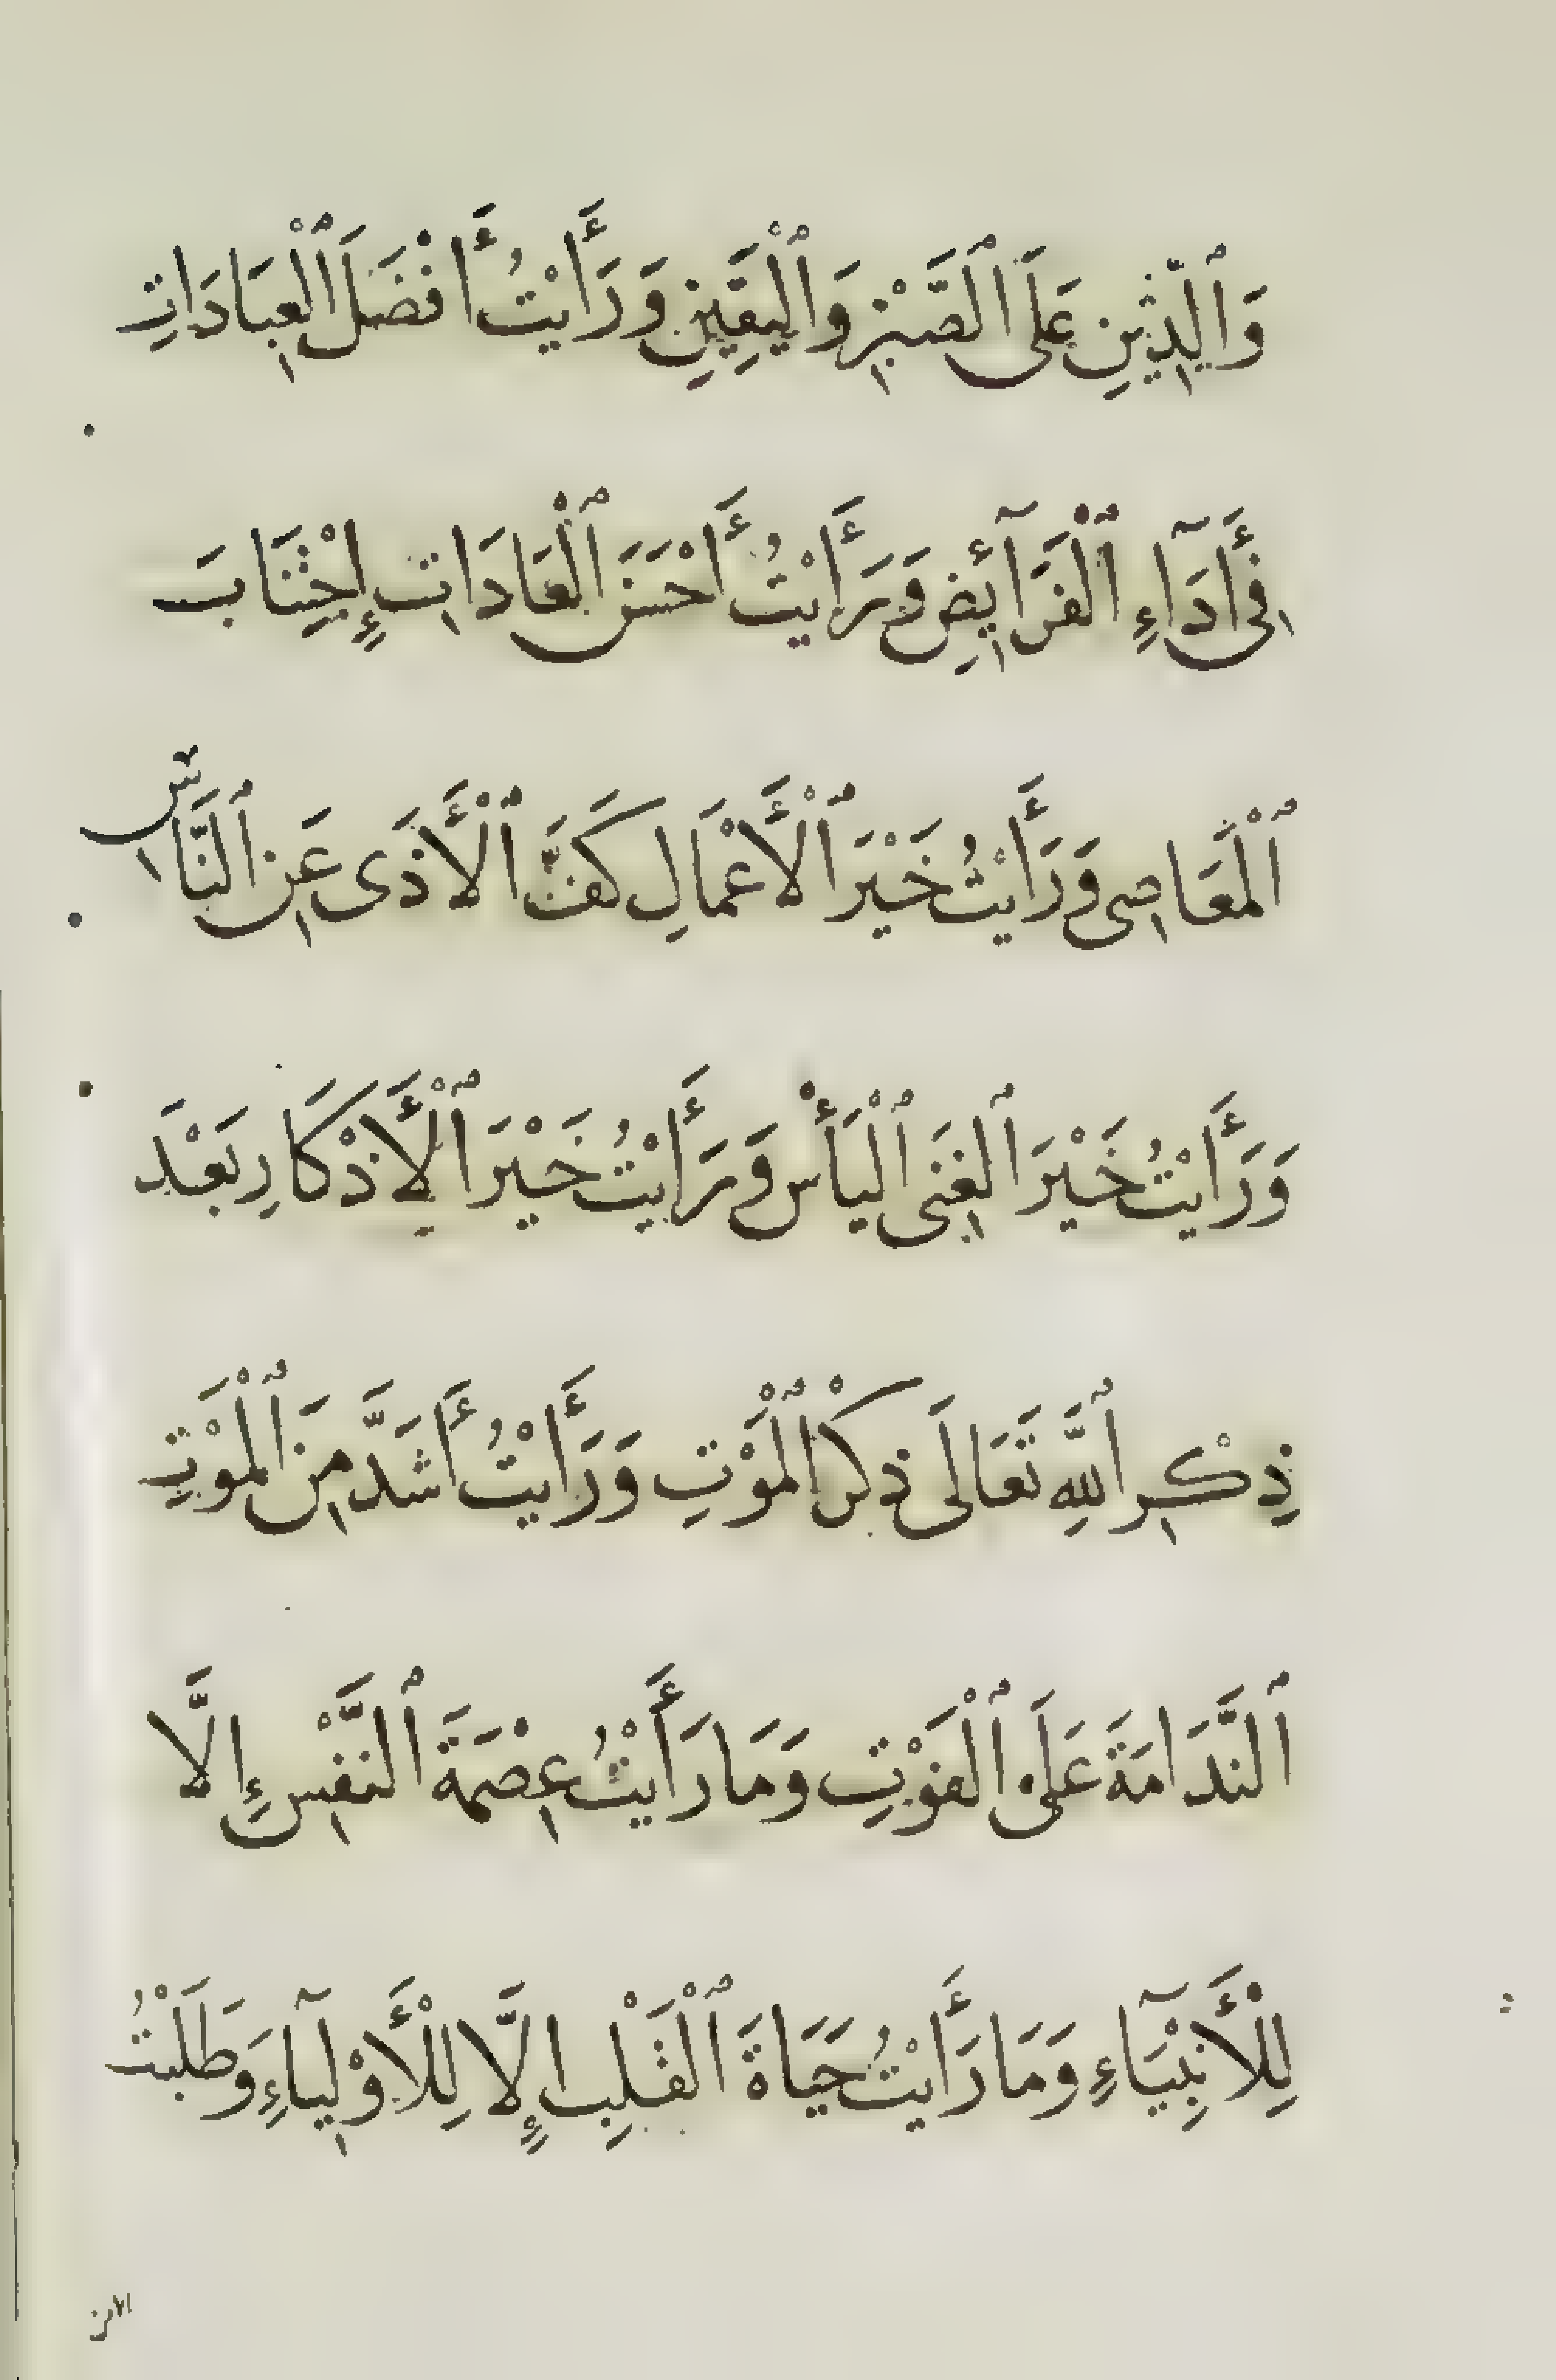 وَٱلدِّينِ عَلَى ٱلصَّبْرِ وَٱلْيَقِينِ وَرَأَيْتُ أَفْضَلَ ٱلْعِبَادَاتِ
فِي أَدَآءِ ٱلْفَرَآئِضِ وَرَأَيْتُ أَحْسَنَ ٱلْعَادَاتِ إِجْتِنَابَ
ٱلْمَعَاصِى وَرَأَيْتُ خَيْرَ ٱلْأَعْمَالِ كَفَّ ٱلْأَذَى عَنِ ٱلنَّاسِ
وَرَأَيْتُ خَيْرَ ٱلغِنَى ٱلْيَأْس وَرَأَيْتُ خَيْرَ ٱلْأَذْكَارِ بَعْدَ
ذِكْرِ ٱللّٰهِ تَعَالَى ذِكْرَ ٱلْمَوْتِ وَرَأَيْتُ أَشَدَّ مِنَ ٱلْمَوْتِ
ٱلنَّدَامَةَ عَلَى ٱلْفَوْتِ وَمَا رَأَيْتُ عِصْمَةَ ٱلنَّفْسِ إِلَّا
لِلْأَنْبِيَآءِ وَمَا رَأَيْتُ حَيَاةَ ٱلْقَلْبِ إِلَّا لِلْأَوْلِيَآءِ وَطَلَبْتُ